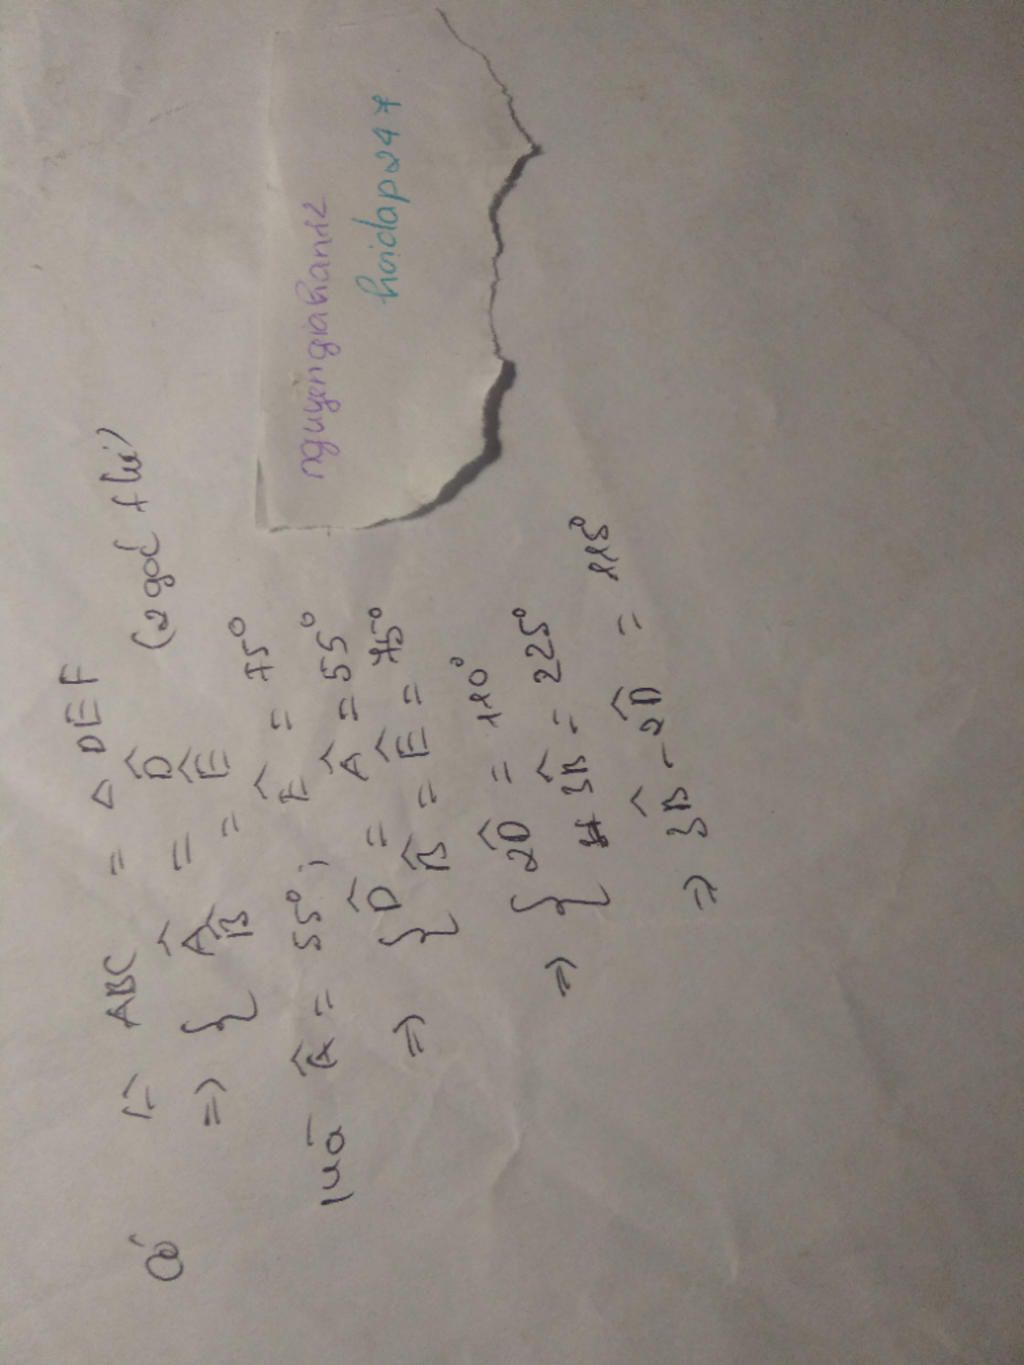 Có Δ ABC = Δ DEF
=> { Â = D̂ (2 góc t/ứ)
B̂ = Ê
mà Â = 55°; Ê = 75°
=> { D̂ = Â = 55°
B̂ = Ê = 75°
=> { 2D̂ = 110°
3B̂ = 225°
=> 3B̂ - 2D̂ = 115°
nguyengiahan12
hoidap247